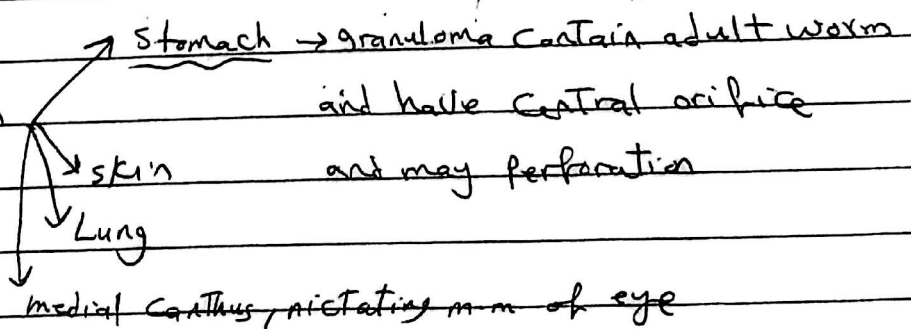 Stomach → granuloma contain adult worm
and have central orifice
and may perforation
skin
Lung
medial canthus, nictating m.m of eye